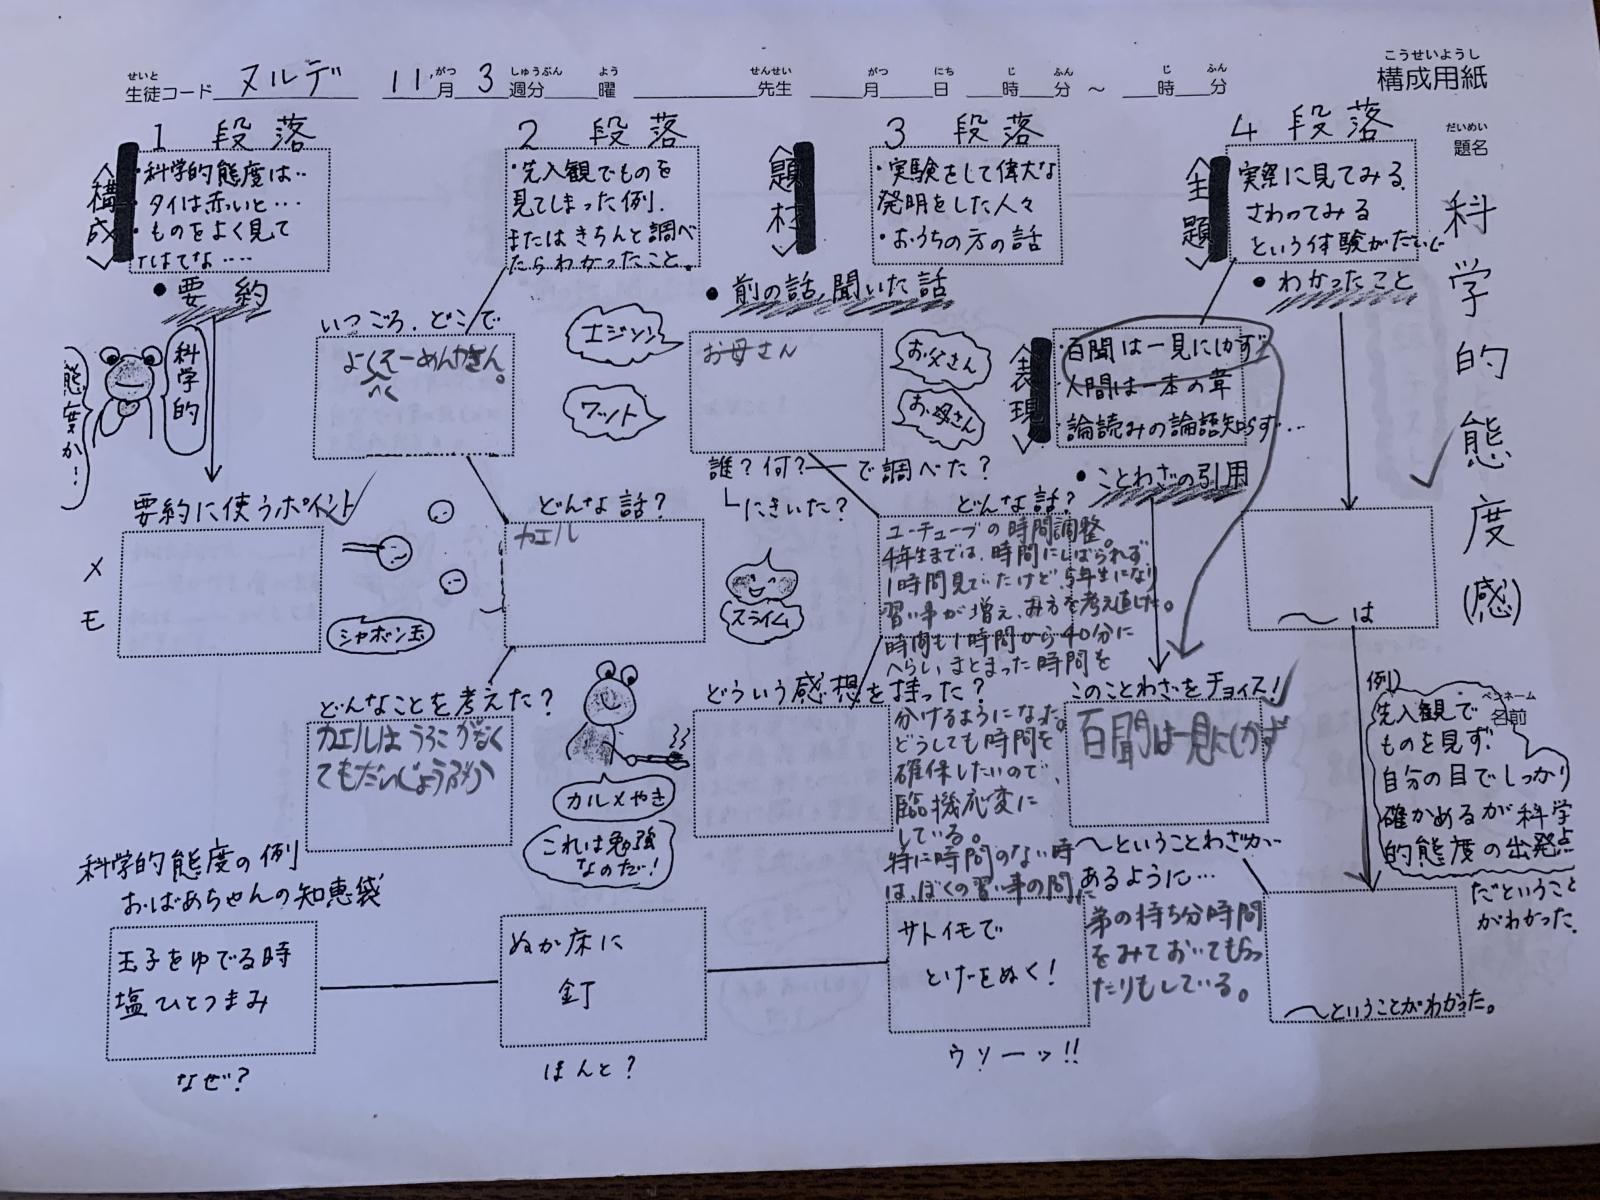 せいと がつ しゅうぶん よう せんせい がつ にち じ ふん じ ふん こうせいようし
生徒コード ヌルデ 11月 3 週分 曜 先生 月 日 時 分 ～ 時 分 構成用紙
だいめい
題名
科学的態度(感)
ペンネーム
名前
1 段落
＜構成＞
・科学的態度は‥
・タイは赤いと…
・ものをよく見て
ではてな‥‥
・要約
科学的
態度か!
要約に使うポイント
メモ
2 段落
・先入観でものを
見てしまった例.
またはきちんと調べ
たらわかったこと。
いつごろ、どこで
シャボン玉
どんな話?
カエル
どんなことを考えた?
カエルはうろこがなく
てもだいじょうぶか
カルメやき
これは勉強
なのだ!
＜題材＞
3 段落
・実験をして偉大な
発明をした人々
・おうちの方の話
・前の話、聞いた話
エジソン
ワット
お母さん
お父さん
お母さん
誰?何?―で調べた?
にきいた?
スライム
どんな話?
ユーチューブの時間調整。
4年生までは、時間にしばられず、
1時間見ていたけど、5年生になり
習い事が増え、み方を考え直した。
時間も1時間から40分に
へらしいまとまった時間を
分けるようになった。
どうしても時間を
確保したいので、
臨機応変に
している。
特に時間のない時
は、ぼくの習い事の間に
弟の持ち分時間
をみておいてもらっ
たりもしている。
どういう感想を持った?
＜主題＞
4 段落
実際に見てみる.
さわってみる
という体験がだいじ
・わかったこと
＜表現＞
・百聞は一見にしかず
・人間は一本の葦
・論語読みの論語知らず…
・ことわざの引用
このことわざをチョイス!
百聞は一見にしかず
～ということわざが
あるように…
～は
例)
先入観で
ものを見ず.
自分の目でしっかり
確かめるが科学
的態度の出発点
だということ
がわかった.
～ということがわかった。
科学的態度の例
おばあちゃんの知恵袋
玉子をゆでる時
塩ひとつまみ
なぜ?
ぬか床に
釘
ほんと?
サトイモで
とげをぬく!
ウソーッ!!